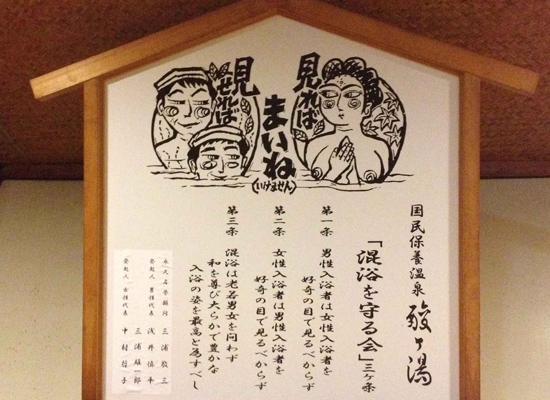 見れば
見せれば
まいね
(いけません)
国民保養温泉 酸ヶ湯
「混浴を守る会」三ヶ条
第一条 男性入浴者は女性入浴者を
好奇の目で見るべからず
第二条 女性入浴者は男性入浴者を
好奇の目で見るべからず
第三条 混浴は老若男女を問わず
和を尊び大らかで豊かな
入浴の姿を最高と為すべし
永久名誉顧問 三浦敬三
発起人 男性代表 浅井慎平
三浦雄一郎
発起人 女性代表 中村